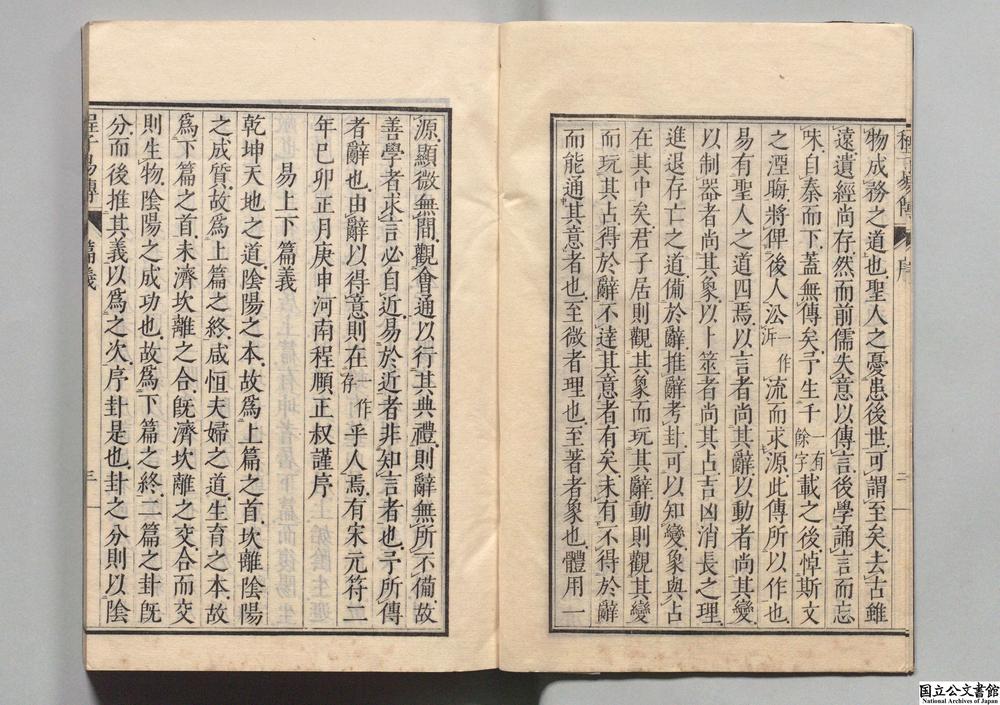 程子易傳 序 二
物成務之道也聖人之憂患後世可謂至矣去古雖
遠遺經尚存然而前儒失意以傳言後學誦言而忘
味自秦而下蓋無傳矣予生千一有餘字載之後悼斯文
之湮晦將俾後人沿一作泝流而求源此傳所以作也
易有聖人之道四焉以言者尚其辭以動者尚其變
以制器者尚其象以卜筮者尚其占吉凶消長之理
進退存亡之道備於辭推辭考卦可以知變象與占
在其中矣君子居則觀其象而玩其辭動則觀其變
而玩其占得於辭不達其意者有矣未有不得於辭
而能通其意者也至微者理也至著者象也體用一
源顯微無間觀會通以行其典禮則辭無所不備故
善學者求言必自近易於近者非知言者也予所傳
者辭也由辭以得意則在一作存乎人焉有宋元符二
年己卯正月庚申河南程頤正叔謹序
易上下篇義
乾坤天地之道陰陽之本故爲上篇之首坎離陰陽
之成質故爲上篇之終咸恒夫婦之道生育之本故
爲下篇之首未濟坎離之合旣濟坎離之交合而交
則生物陰陽之成功也故爲下篇之終二篇之卦旣
分而後推其義以爲之次序卦是也卦之分則以陰
程子易傳 篇義 三 一
国立公文書館
National Archives of Japan